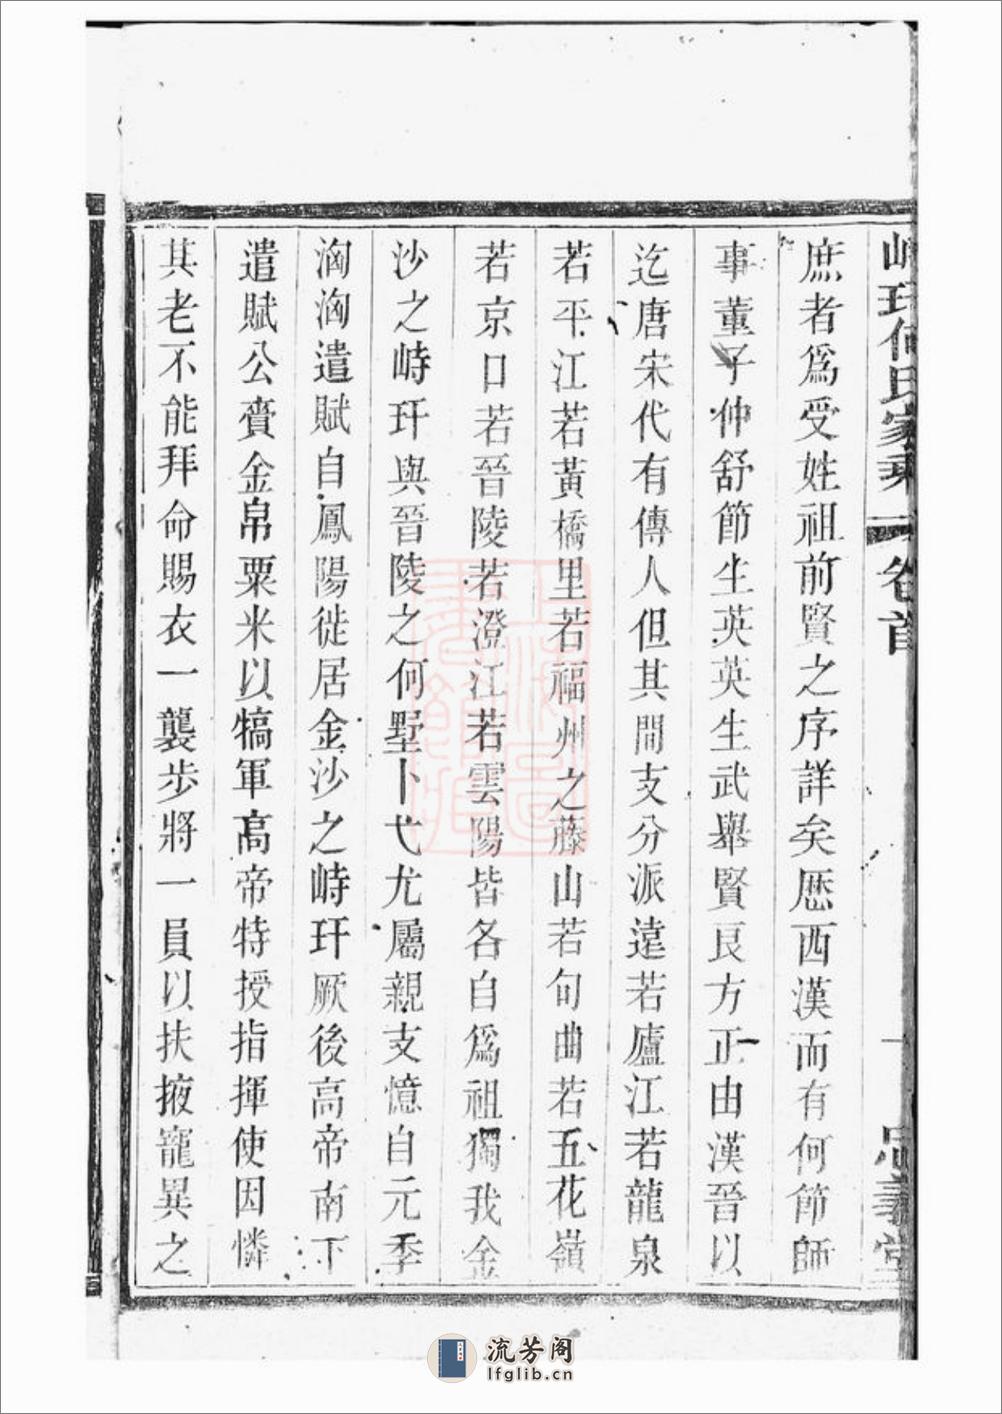 峙玗何氏家乘 卷首 一 忠義堂
庶者爲受姓祖前賢之序詳矣歷西漢而有何節師
事董子仲舒節生英英生武舉賢良方正由漢晉以
迄唐宋代有傳人但其間支分派遠若廬江若龍泉
若平江若黃橋里若福州之藤山若句曲若五花嶺
若京口若晉陵若澄江若雲陽皆各自爲祖獨我金
沙之峙玗與晉陵之何墅卜弋尤屬親支憶自元季
洶洶遣賦自鳳陽徙居金沙之峙玗厥後高帝南下
遣賦公賫金帛粟米以犒軍高帝特授指揮使因憐
其老不能拜命賜衣一襲步將一員以扶掖寵異之
流芳阁
lfglib.cn